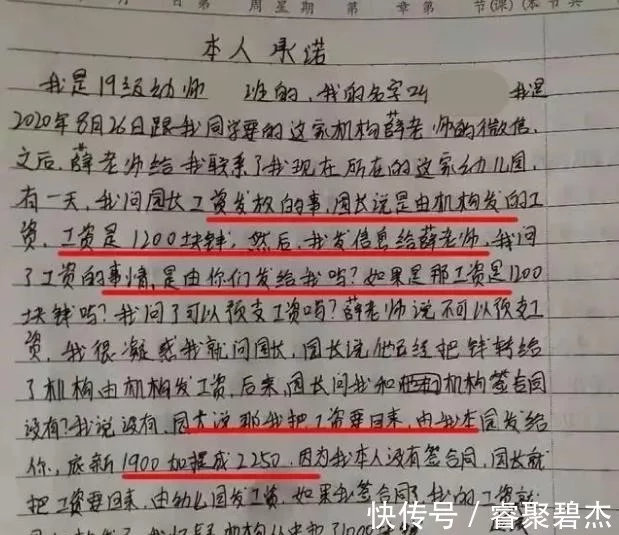 月 日 第 周 星期 第 章 第 节(课)(本节共
本人承诺
我是19级幼师 班的,我的名字叫 我是
2020年8月26日跟我同学要的这家机构薛老师的微信,
之后,薛老师给我联系了我现在所在的这家幼儿园,
有一天,我问园长工资发放的事,园长说是由机构发的工
资,工资是1200块钱,然后,我发信息给薛老师,我问
了工资的事情,是由你们发给我吗?如果是那工资是1200
块钱吗?我问了可以预支工资吗?薛老师说不可以预支工
资,我很凝惑我就问园长,园长说,他已经把钱转给
了机构由机构发工资,后来,园长问我和机构签合同
没有?我说没有,园长说那我把工资要回来,由我本园发给
你,底薪1900加提成2250,因为我本人没有签合同,园长就
把工资要回来,由幼儿园发工资,如果我签合同了,我的工资就
快传号/睿聚碧杰